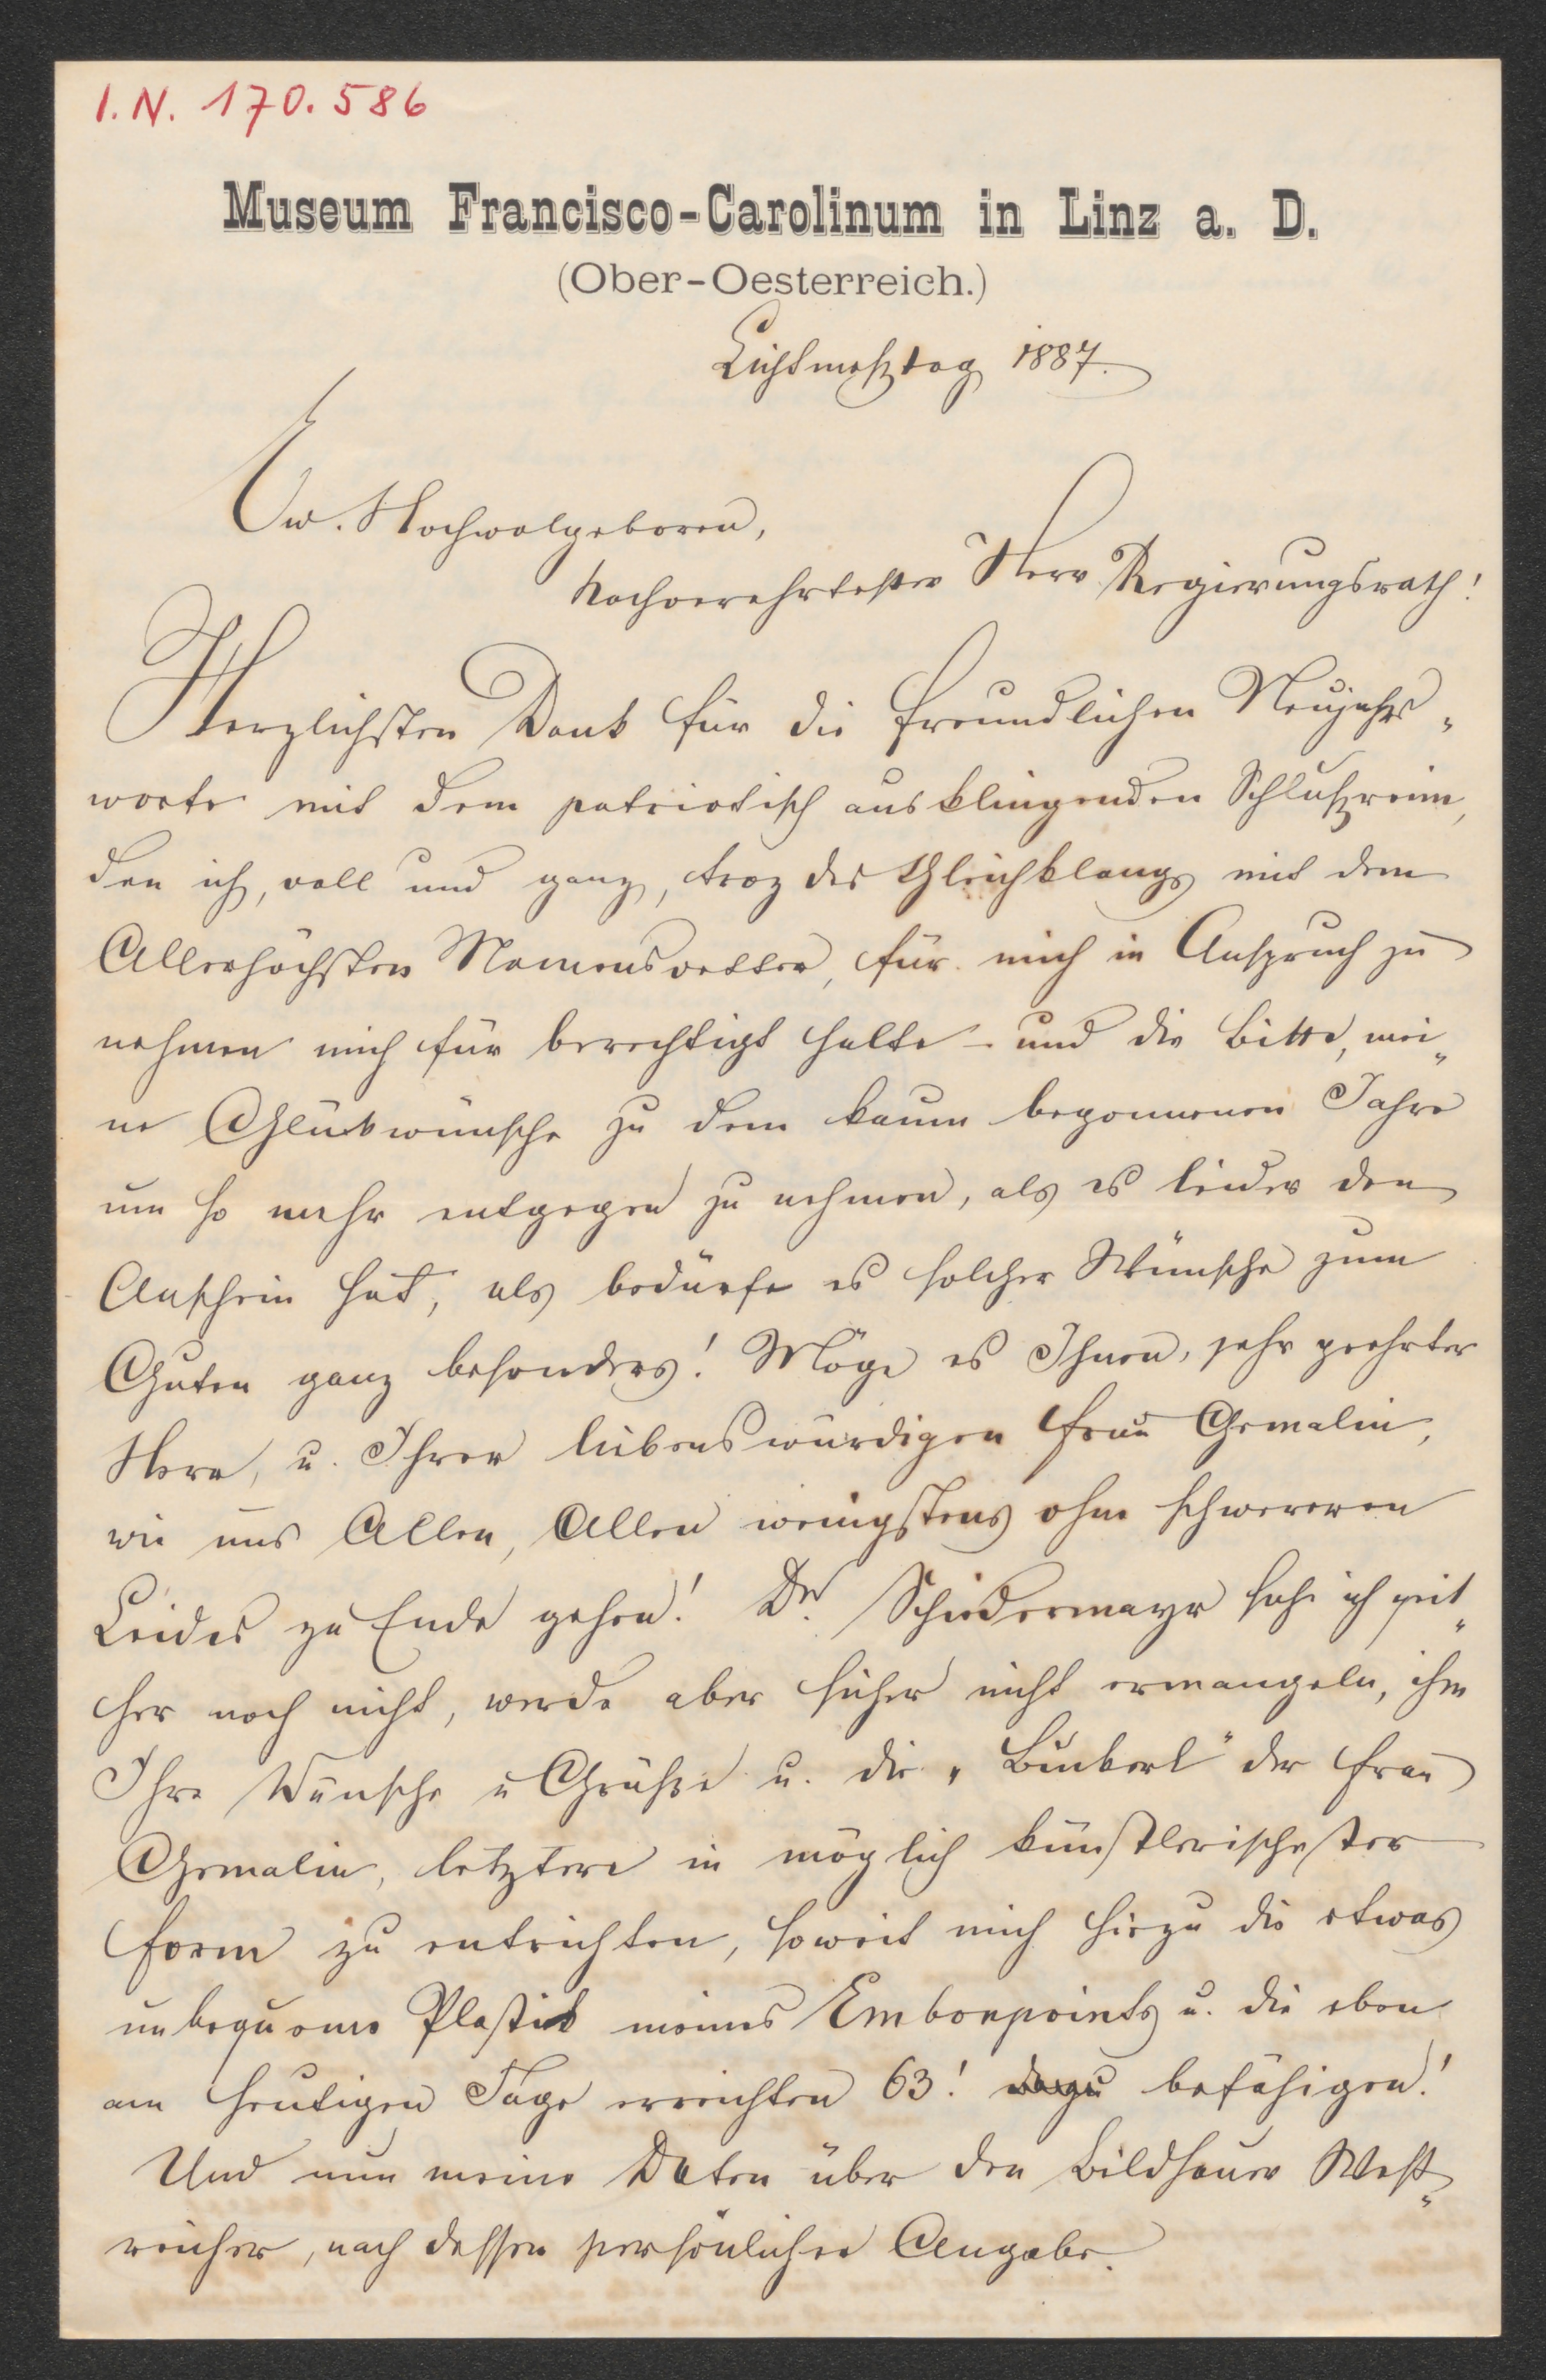 I. N. 170.586
Museum Francisco-Carolinum in Linz a. D.
(Ober-Oesterreich.)
Lichtmeßtag 1887.
Ew. Hochwolgeboren,
hochverehrtester Herr Regierungsrath!
Herzlichsten Dank für die freundlichen Neujahrs„
worte mit dem patriotisch ausklingenden Schlußreim,
den ich, voll und ganz, troz des Gleichklangs mit dem
Allerhöchsten Namensvetter, für mich in Anspruch zu
nehmen mich für berechtigt halte – und die Bitte, mei„
ne Glükwünsche zu dem kaum begonnenen Jahre
um so mehr entgegen zu nehmen, als es leider den
Anschein hat, als bedürfe es solcher Wünsche zum
Guten ganz besonders! Möge es Ihnen, sehr geehrter
Herr, u. Ihrer liebenswürdigen Frau Gemalin,
wie uns Allen, Allen wenigstens ohne schwereren
Leides zu Ende gehen! Dr. Schiedermayr sah ich seit„
her noch nicht, werde aber sicher nicht ermangeln, ihm
Ihre Wünsche u Grüße u. die „Binkerl" der Frau
Gemalin, letztere in möglich künstlerischester
Form zu entrichten, soweit mich hiezu die etwas
unbequeme Plastik meines Embonpoints u. die eben
am heutigen Tage erreichten 63! dazu befähigen!
Und nun meine Daten über den Bildhauer West„
reicher, nach dessen persönlicher Angabe.